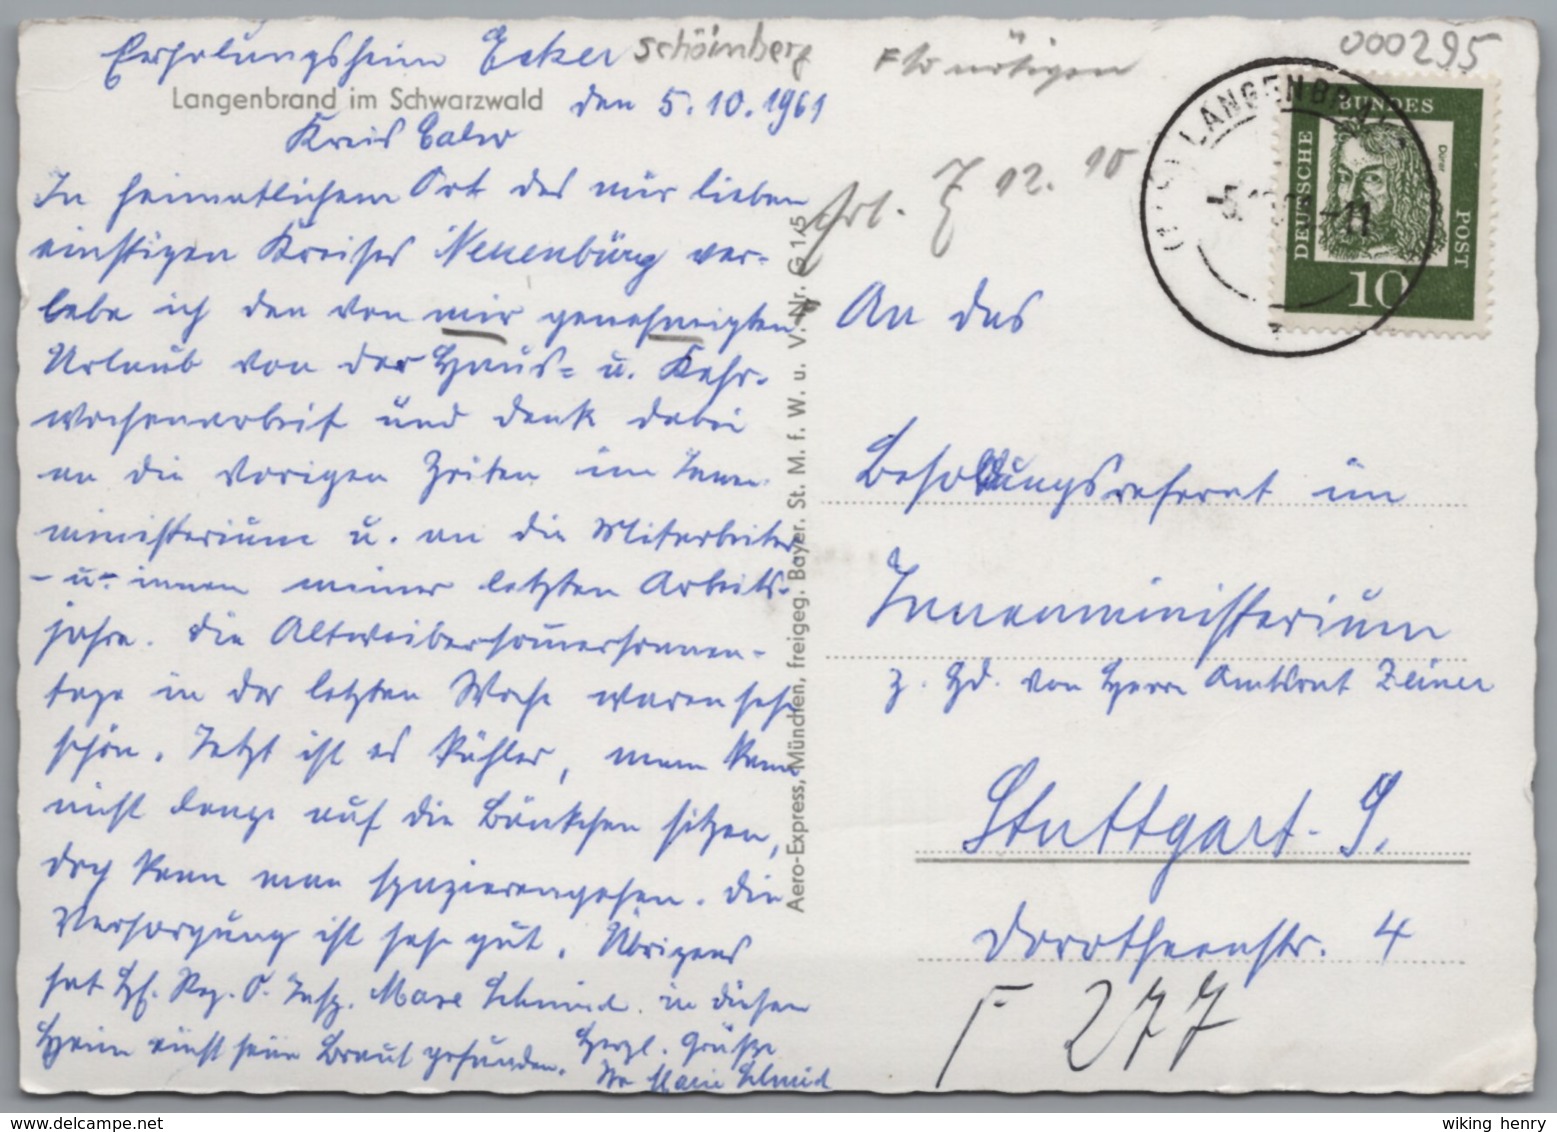 Erholungsheim Ecker Schömberg
Langenbrand im Schwarzwald den 5.10.1961
Kreis Calw
In heimatlichem Ort des mir lieben
einstigen Kreises Neuenbürg ver-
lebe ich den von mir genehmigten
Urlaub von der Haus- u. Kehr-
wochenarbeit und denk dabei
an die vorigen Zeiten im Innen-
ministerium u. an die Mitarbeiter
- u. innen meiner letzten Arbeits-
jahre. Die Altweibersommersonnen-
tage in der letzten Woche waren sehr
schön. Jetzt ist es kühler, man kann
nicht lange auf die Bänkchen sitzen,
doch kann man spazierengehen. Die
Versorgung ist sehr gut. Übrigens
hat H. Reg. O. Insp. Schmid in diesem
Heim einst seine Braut gefunden. Herzl. Grüße
Marie Schmid
Aero-Express, München, freigeg. Bayer. St. M. f. W. u. V. Nr. G 1/5
000295
LANGENBRAND
DEUTSCHE BUNDESPOST
Dürer
10
12. 10
An das
Besoldungsreferat im
Innenministerium
z. Hd. von Herrn Amtsrat Zeiner
Stuttgart-S.
Dorotheenstr. 4
F 277
wiking henry